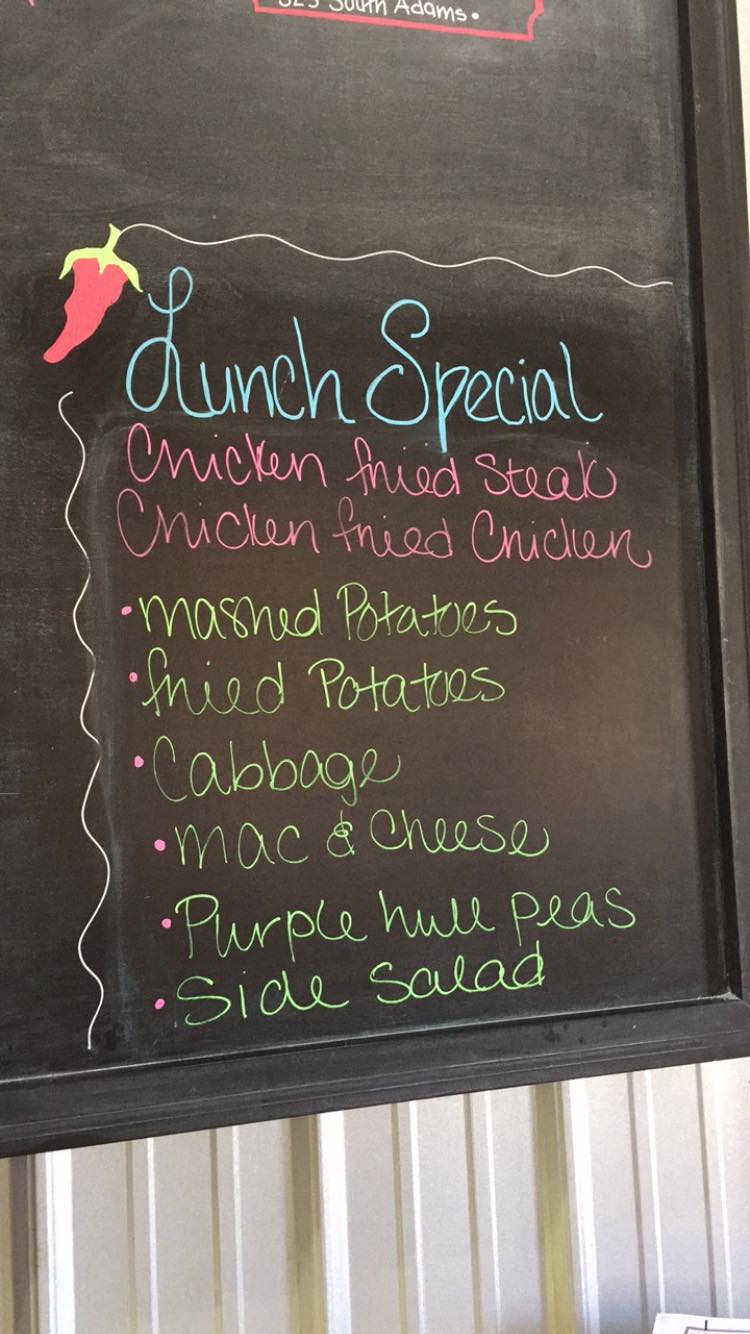 South Adams.
Lunch Special
Chicken fried Steak
Chicken fried Chicken
•mashed Potatoes
•fried Potatoes
•Cabbage
•mac & Cheese
•Purple hull peas
•Side Salad